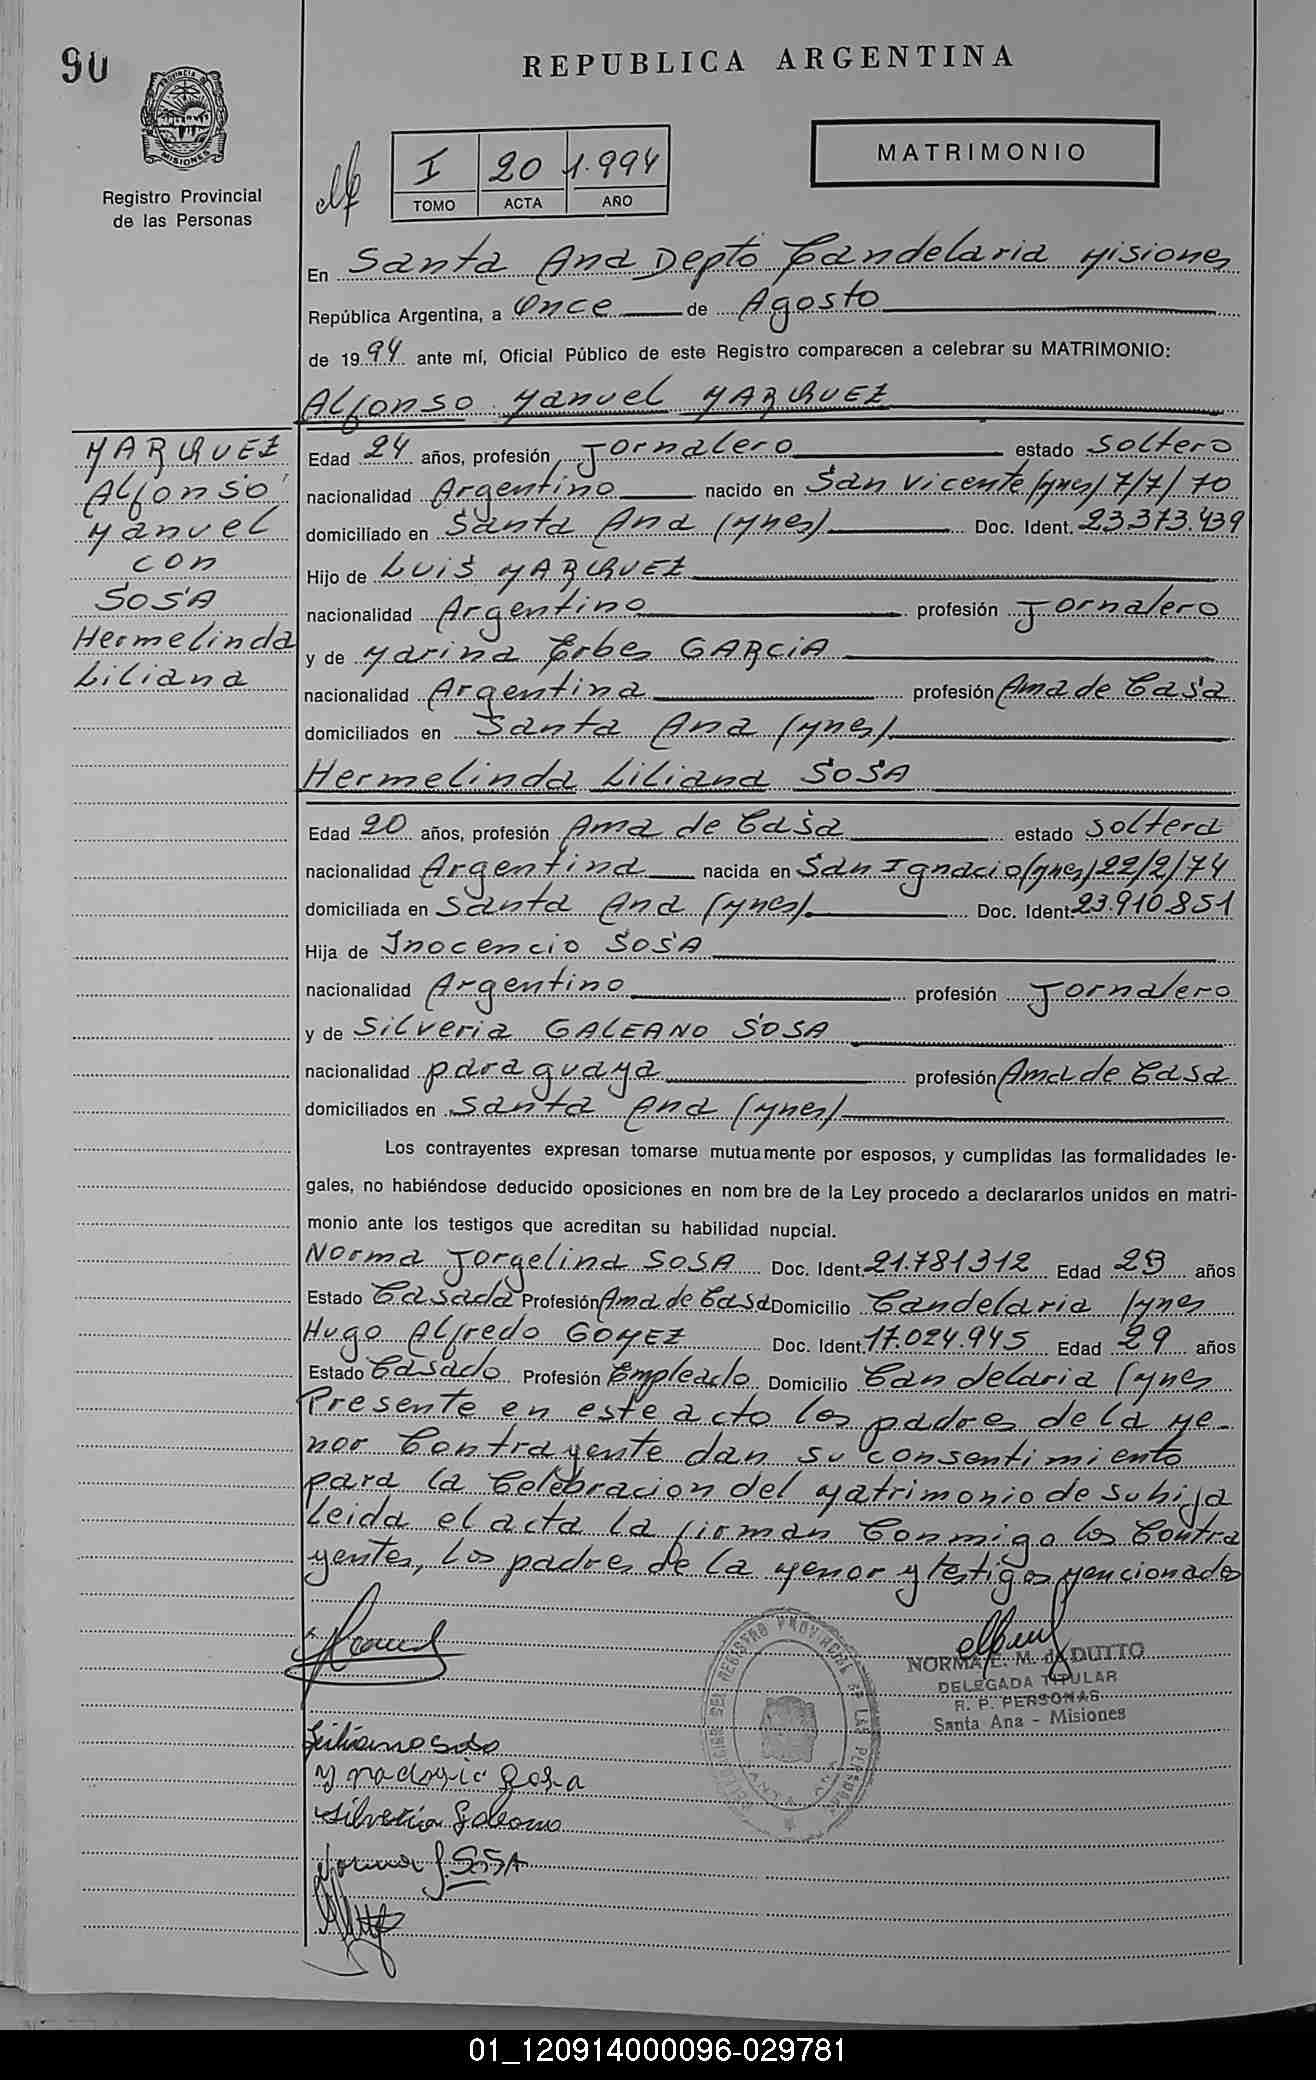 90
REPUBLICA ARGENTINA
PROVINCIA DE MISIONES
Registro Provincial
de las Personas
I 20 1.994
TOMO ACTA AÑO
MATRIMONIO
En Santa Ana Depto Candelaria Misiones
República Argentina, a Once de Agosto
de 1994 ante mí, Oficial Público de este Registro comparecen a celebrar su MATRIMONIO:
Alfonso Manuel MARQUEZ
MARQUEZ
Alfonso
Manuel
con
SOSA
Hermelinda
Liliana
Edad 24 años, profesión Jornalero estado Soltero
nacionalidad Argentino nacido en San Vicente (Mnes) 7/7/70
domiciliado en Santa Ana (Mnes) Doc. Ident. 23.373.439
Hijo de Luis MARQUEZ
nacionalidad Argentino profesión Jornalero
y de Marina Erbes GARCIA
nacionalidad Argentina profesión Ama de Casa
domiciliados en Santa Ana (Mnes)
Hermelinda Liliana SOSA
Edad 20 años, profesión Ama de Casa estado Soltera
nacionalidad Argentina nacida en San Ignacio (Mnes) 22/2/74
domiciliada en Santa Ana (Mnes) Doc. Ident. 23.910.851
Hija de Inocencio SOSA
nacionalidad Argentino profesión Jornalero
y de Silveria GALEANO SOSA
nacionalidad paraguaya profesión Ama de Casa
domiciliados en Santa Ana (Mnes)
Los contrayentes expresan tomarse mutuamente por esposos, y cumplidas las formalidades le-
gales, no habiéndose deducido oposiciones en nom bre de la Ley procedo a declararlos unidos en matri-
monio ante los testigos que acreditan su habilidad nupcial.
Norma Jorgelina SOSA Doc. Ident. 21.781.312 Edad 23 años
Estado Casada Profesión Ama de Casa Domicilio Candelaria (Mnes
Hugo Alfredo GOMEZ Doc. Ident. 17.024.945 Edad 29 años
Estado Casado Profesión Empleado Domicilio Candelaria (Mnes
Presente en este acto los padres de la Me-
nor Contrayente dan su consentimiento
para la Celebracion del Matrimonio de su hija
Leida el acta la firman Conmigo los Contra
yentes, los padres de la Menor y testigos Mencionados
NORMA E. M. de DUTTO
DELEGADA TITULAR
R. P. PERSONAS
Santa Ana - Misiones
Liliana Sosa
Silveria Galeano
Norma J. SOSA
01_120914000096-029781